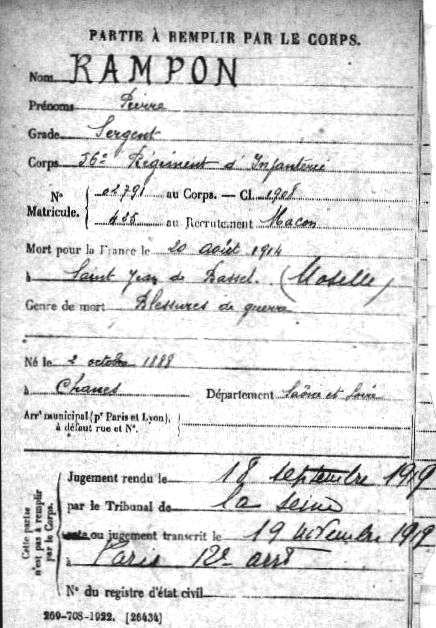 PARTIE À REMPLIR PAR LE CORPS.
Nom RAMPON
Prénoms Pierre
Grade Sergent
Corps 56e Régiment d'Infanterie
N° Matricule. { 02791 au Corps. — Cl. 1908
435 au Recrutement Macon
Mort pour la France le 20 août 1914
à Saint Jean de Bassel. (Moselle)
Genre de mort Blessures de guerre
Né le 2 octobre 1888
à Chanes Département Saône et Loire
Arrt municipal (pr Paris et Lyon), à défaut rue et N°. {
Cette partie n'est pas à remplir par le Corps.
Jugement rendu le 18 septembre 1919
par le Tribunal de la Seine
acte ou jugement transcrit le 19 novembre 1919
à Paris 12e arrt
N° du registre d'état civil
269-708-1922. [26434]